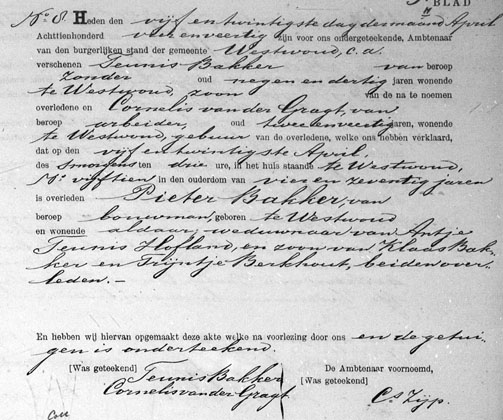 BLAD
No 8. Heden den vijf en twintigste dag der maand April
Achttienhonderd vier en veertig zijn voor ons ondergeteekende, Ambtenaar
van den burgerlijken stand der gemeente Westwoud, c.a.
verschenen Teunis Bakker van beroep
zonder oud negen en dertig jaren wonende
te Westwoud, zoon van de na te noemen
overledene en Cornelis van der Gragt, van
beroep arbeider, oud twee en veertig jaren, wonende
te Westwoud, gebuur van de overledene, welke ons hebben verklaard,
dat op den vijf en twintigste April,
des smorgens ten drie ure, in het huis staande te Westwoud,
No vijftien in den ouderdom van vier en zeventig jaren
is overleden Pieter Bakker, van
beroep bouwman, geboren te Westwoud
en wonende aldaar, weduwnaar van Antje
Teunis Hofland, en zoon van Klaas Bak-
ker en Trijntje Berkhout, beiden over-
leden. —
En hebben wij hiervan opgemaakt deze akte welke na voorlezing door ons en de getui-
gen is onderteekend.
[Was geteekend] Teunis Bakker De Ambtenaar voornoemd,
Cornelis van der Gragt [Was geteekend]
Cs Zijp.